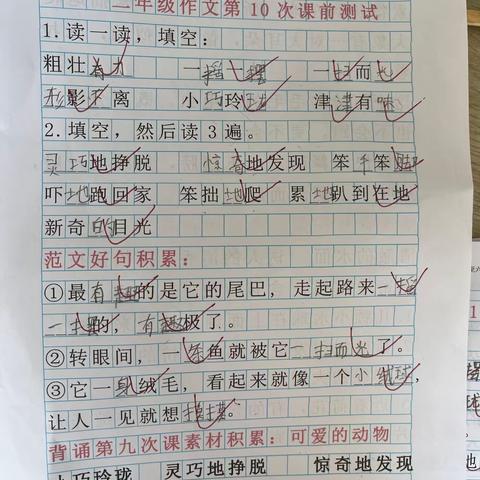 二年级作文第10次课前测试
1.读一读，填空：
粗壮有力 一摇一摆 一扫而光
形影不离 小巧玲珑 津津有味
2.填空，然后读3遍。
灵巧地挣脱 惊奇地发现 笨手笨脚
吓地跑回家 笨拙地爬 累地趴到在地
新奇的目光
范文好句积累：
①最有趣的是它的尾巴，走起路来一摇
一摆的，有趣极了。
②转眼间，一条鱼就被它一扫而光了。
③它一身绒毛，看起来就像一个小绒球，
让人一见就想摸摸。
背诵第九次课素材积累：可爱的动物
小巧玲珑 灵巧地挣脱 惊奇地发现